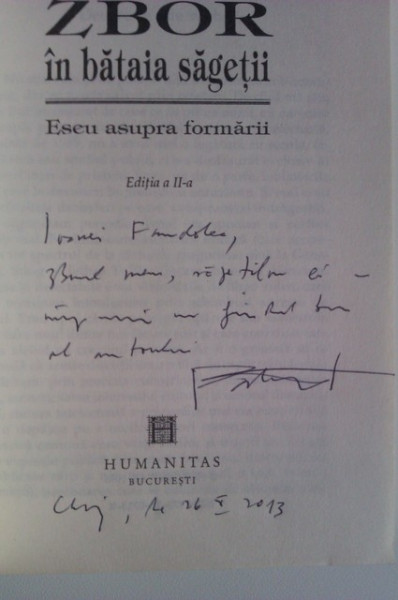 ZBOR
în bătaia săgeții
Eseu asupra formării
Ediția a II-a
Ioanei Fundolea,
zborul meu, săgeților ei –
gând bun
al autorului
HUMANITAS
BUCUREȘTI
Cluj, 26 X 2013